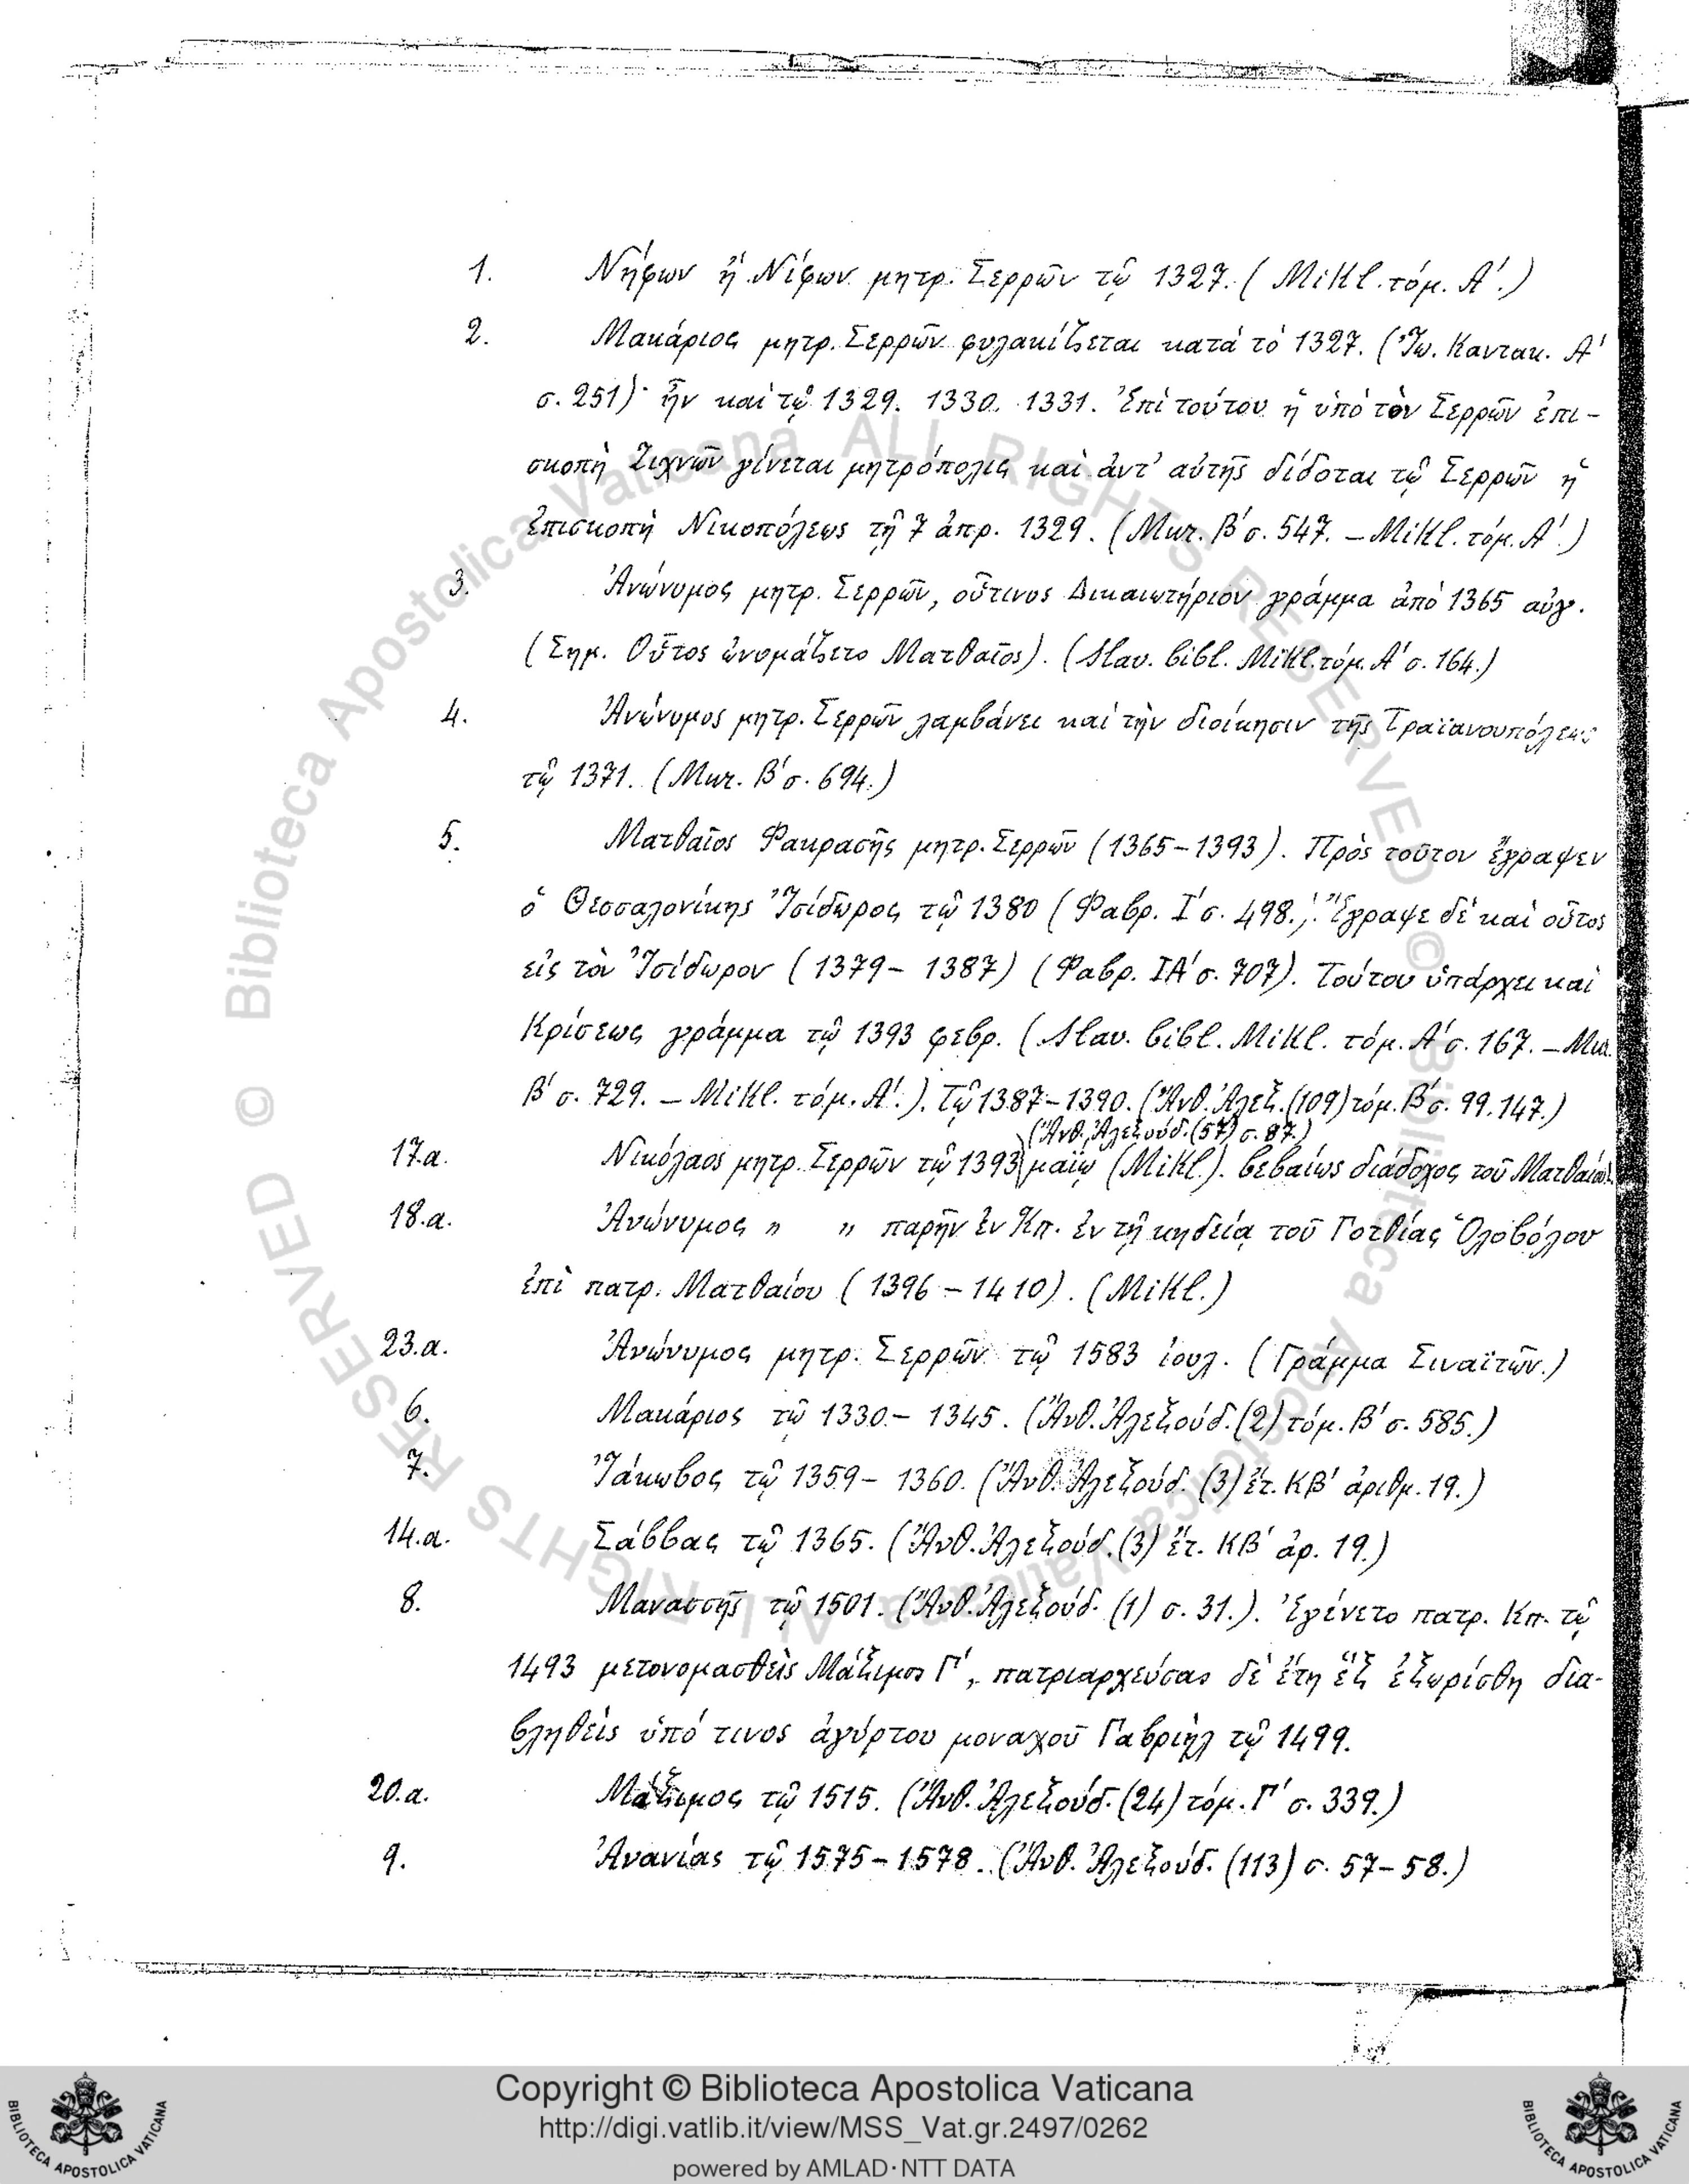 1. Νήφων ἢ Νίφων μητρ. Σερρῶν τῷ 1327. (Mikl. τόμ. Α΄.)
2. Μακάριος μητρ. Σερρῶν φυλακίζεται κατὰ τὸ 1327. (Ἰω. Καντακ. Α΄
σ. 251)· ἦν καὶ τῷ 1329. 1330. 1331. Ἐπὶ τούτου ἡ ὑπὸ τὸν Σερρῶν ἐπι-
σκοπὴ Ζιχνῶν γίνεται μητρόπολις καὶ ἀντ' αὐτῆς δίδοται τῷ Σερρῶν ἡ
ἐπισκοπὴ Νικοπόλεως τῇ 7 ἀπρ. 1329. (Μυζ. Β΄ σ. 547. – Mikl. τόμ. Α΄.)
3. Ἀνώνυμος μητρ. Σερρῶν, οὗτινος Δικαιωτήριον γράμμα ἀπὸ 1365 αὐγ.
(Σημ. Οὗτος ὠνομάζετο Ματθαῖος). (Slav. bibl. Mikl. τόμ. Α΄ σ. 164.)
4. Ἀνώνυμος μητρ. Σερρῶν λαμβάνει καὶ τὴν διοίκησιν τῆς Τραϊανουπόλεως
τῷ 1371. (Μυζ. Β΄ σ. 694.)
5. Ματθαῖος Φακρασῆς μητρ. Σερρῶν (1365–1393). Πρὸς τοῦτον ἔγραψεν
ὁ Θεσσαλονίκης Ἰσίδωρος τῷ 1380 (Φαβρ. Ι΄ σ. 498.). Ἔγραψε δὲ καὶ οὗτος
εἰς τὸν Ἰσίδωρον (1379–1387) (Φαβρ. ΙΑ΄ σ. 707). Τούτου ὑπάρχει καὶ
Κρίσεως γράμμα τῷ 1393 φεβρ. (Slav. bibl. Mikl. τόμ. Α΄ σ. 167. – Μυζ.
Β΄ σ. 729. – Mikl. τόμ. Α΄.). Τῷ 1387–1390. (Ἄνθ. Ἀλεξ. (109) τόμ. Β΄ σ. 99. 147.)
(Ἄνθ. Ἀλεξούδ. (57) σ. 87.)
17.α. Νικόλαος μητρ. Σερρῶν τῷ 1393 μαΐῳ (Mikl.). βεβαίως διάδοχος τοῦ Ματθαίου.
18.α. Ἀνώνυμος " " παρῆν ἐν Κπ. ἐν τῇ κηδείᾳ τοῦ Γοτθίας Ὁλοβόλου
ἐπὶ πατρ. Ματθαίου (1396–1410). (Mikl.)
23.α. Ἀνώνυμος μητρ. Σερρῶν τῷ 1583 ἰουλ. (Γράμμα Σιναϊτῶν.)
6. Μακάριος τῷ 1330–1345. (Ἄνθ. Ἀλεξούδ. (2) τόμ. Β΄ σ. 585.)
7. Ἰάκωβος τῷ 1359–1360. (Ἄνθ. Ἀλεξούδ. (3) ἔτ. ΚΒ΄ ἀριθμ. 19.)
14.α. Σάββας τῷ 1365. (Ἄνθ. Ἀλεξούδ. (3) ἔτ. ΚΒ΄ ἀρ. 19.)
8. Μανασσῆς τῷ 1501. (Ἄνθ. Ἀλεξούδ. (1) σ. 31.). Ἐγένετο πατρ. Κπ. τῷ
1493 μετονομασθεὶς Μάξιμος Γ΄, πατριαρχεύσας δὲ ἔτη ἓξ ἐξωρίσθη δια-
βληθεὶς ὑπό τινος ἀγύρτου μοναχοῦ Γαβριὴλ τῷ 1499.
20.α. Μάξιμος τῷ 1515. (Ἄνθ. Ἀλεξούδ. (24) τόμ. Γ΄ σ. 339.)
9. Ἀνανίας τῷ 1575–1578. (Ἄνθ. Ἀλεξούδ. (113) σ. 57–58.)
© Biblioteca Apostolica Vaticana ALL RIGHTS RESERVED © Biblioteca Apostolica Vaticana ALL RIGHTS RESERVED
Copyright © Biblioteca Apostolica Vaticana
http://digi.vatlib.it/view/MSS_Vat.gr.2497/0262
powered by AMLAD·NTT DATA
BIBLIOTECA APOSTOLICA VATICANA
BIBLIOTECA APOSTOLICA VATICANA